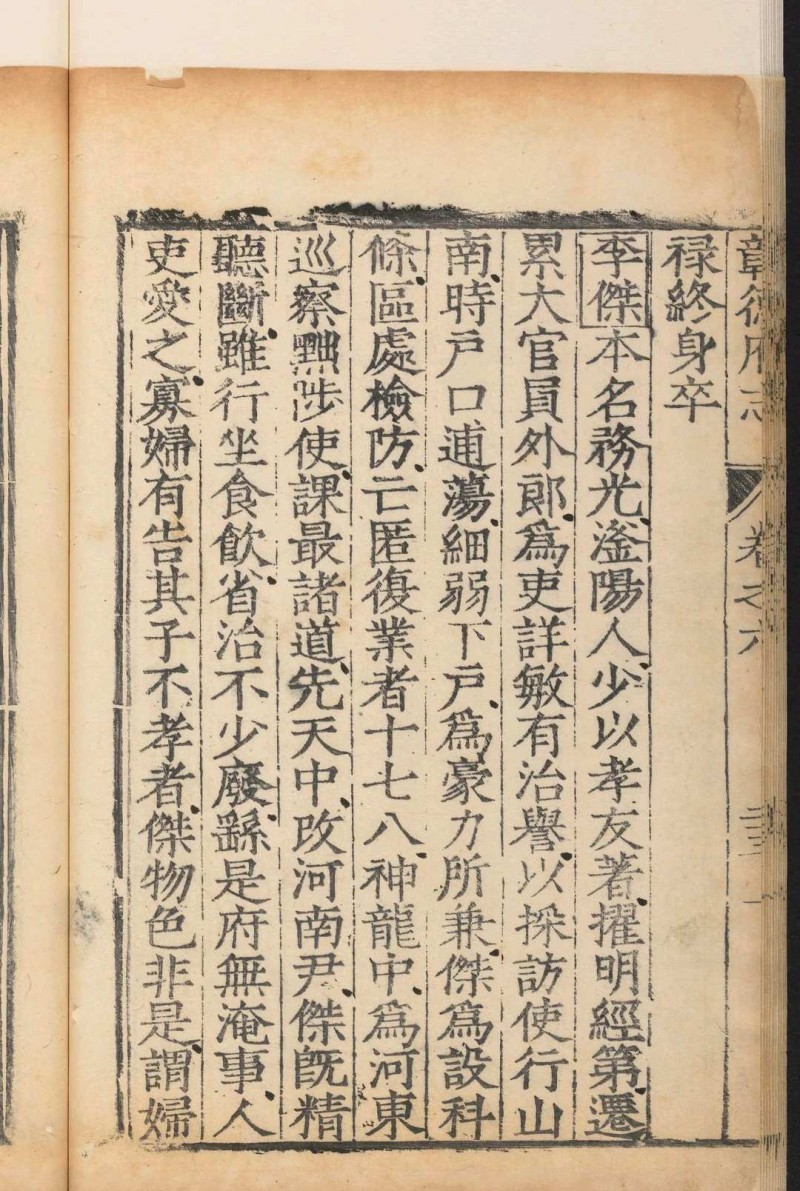 彰德府志 卷之六
禄終身卒
李傑本名務光滏陽人少以孝友著擢明經第遷
累大官員外郎爲吏詳敏有治譽以採訪使行山
南時戶口逋蕩細弱下戶爲豪力所兼傑爲設科
條區處檢防亡匿復業者十七八神龍中爲河東
巡察黜陟使課最諸道先天中改河南尹傑旣精
聽斷雖行坐食飲省治不少廢繇是府無淹事人
吏愛之寡婦有告其子不孝者傑物色非是謂婦